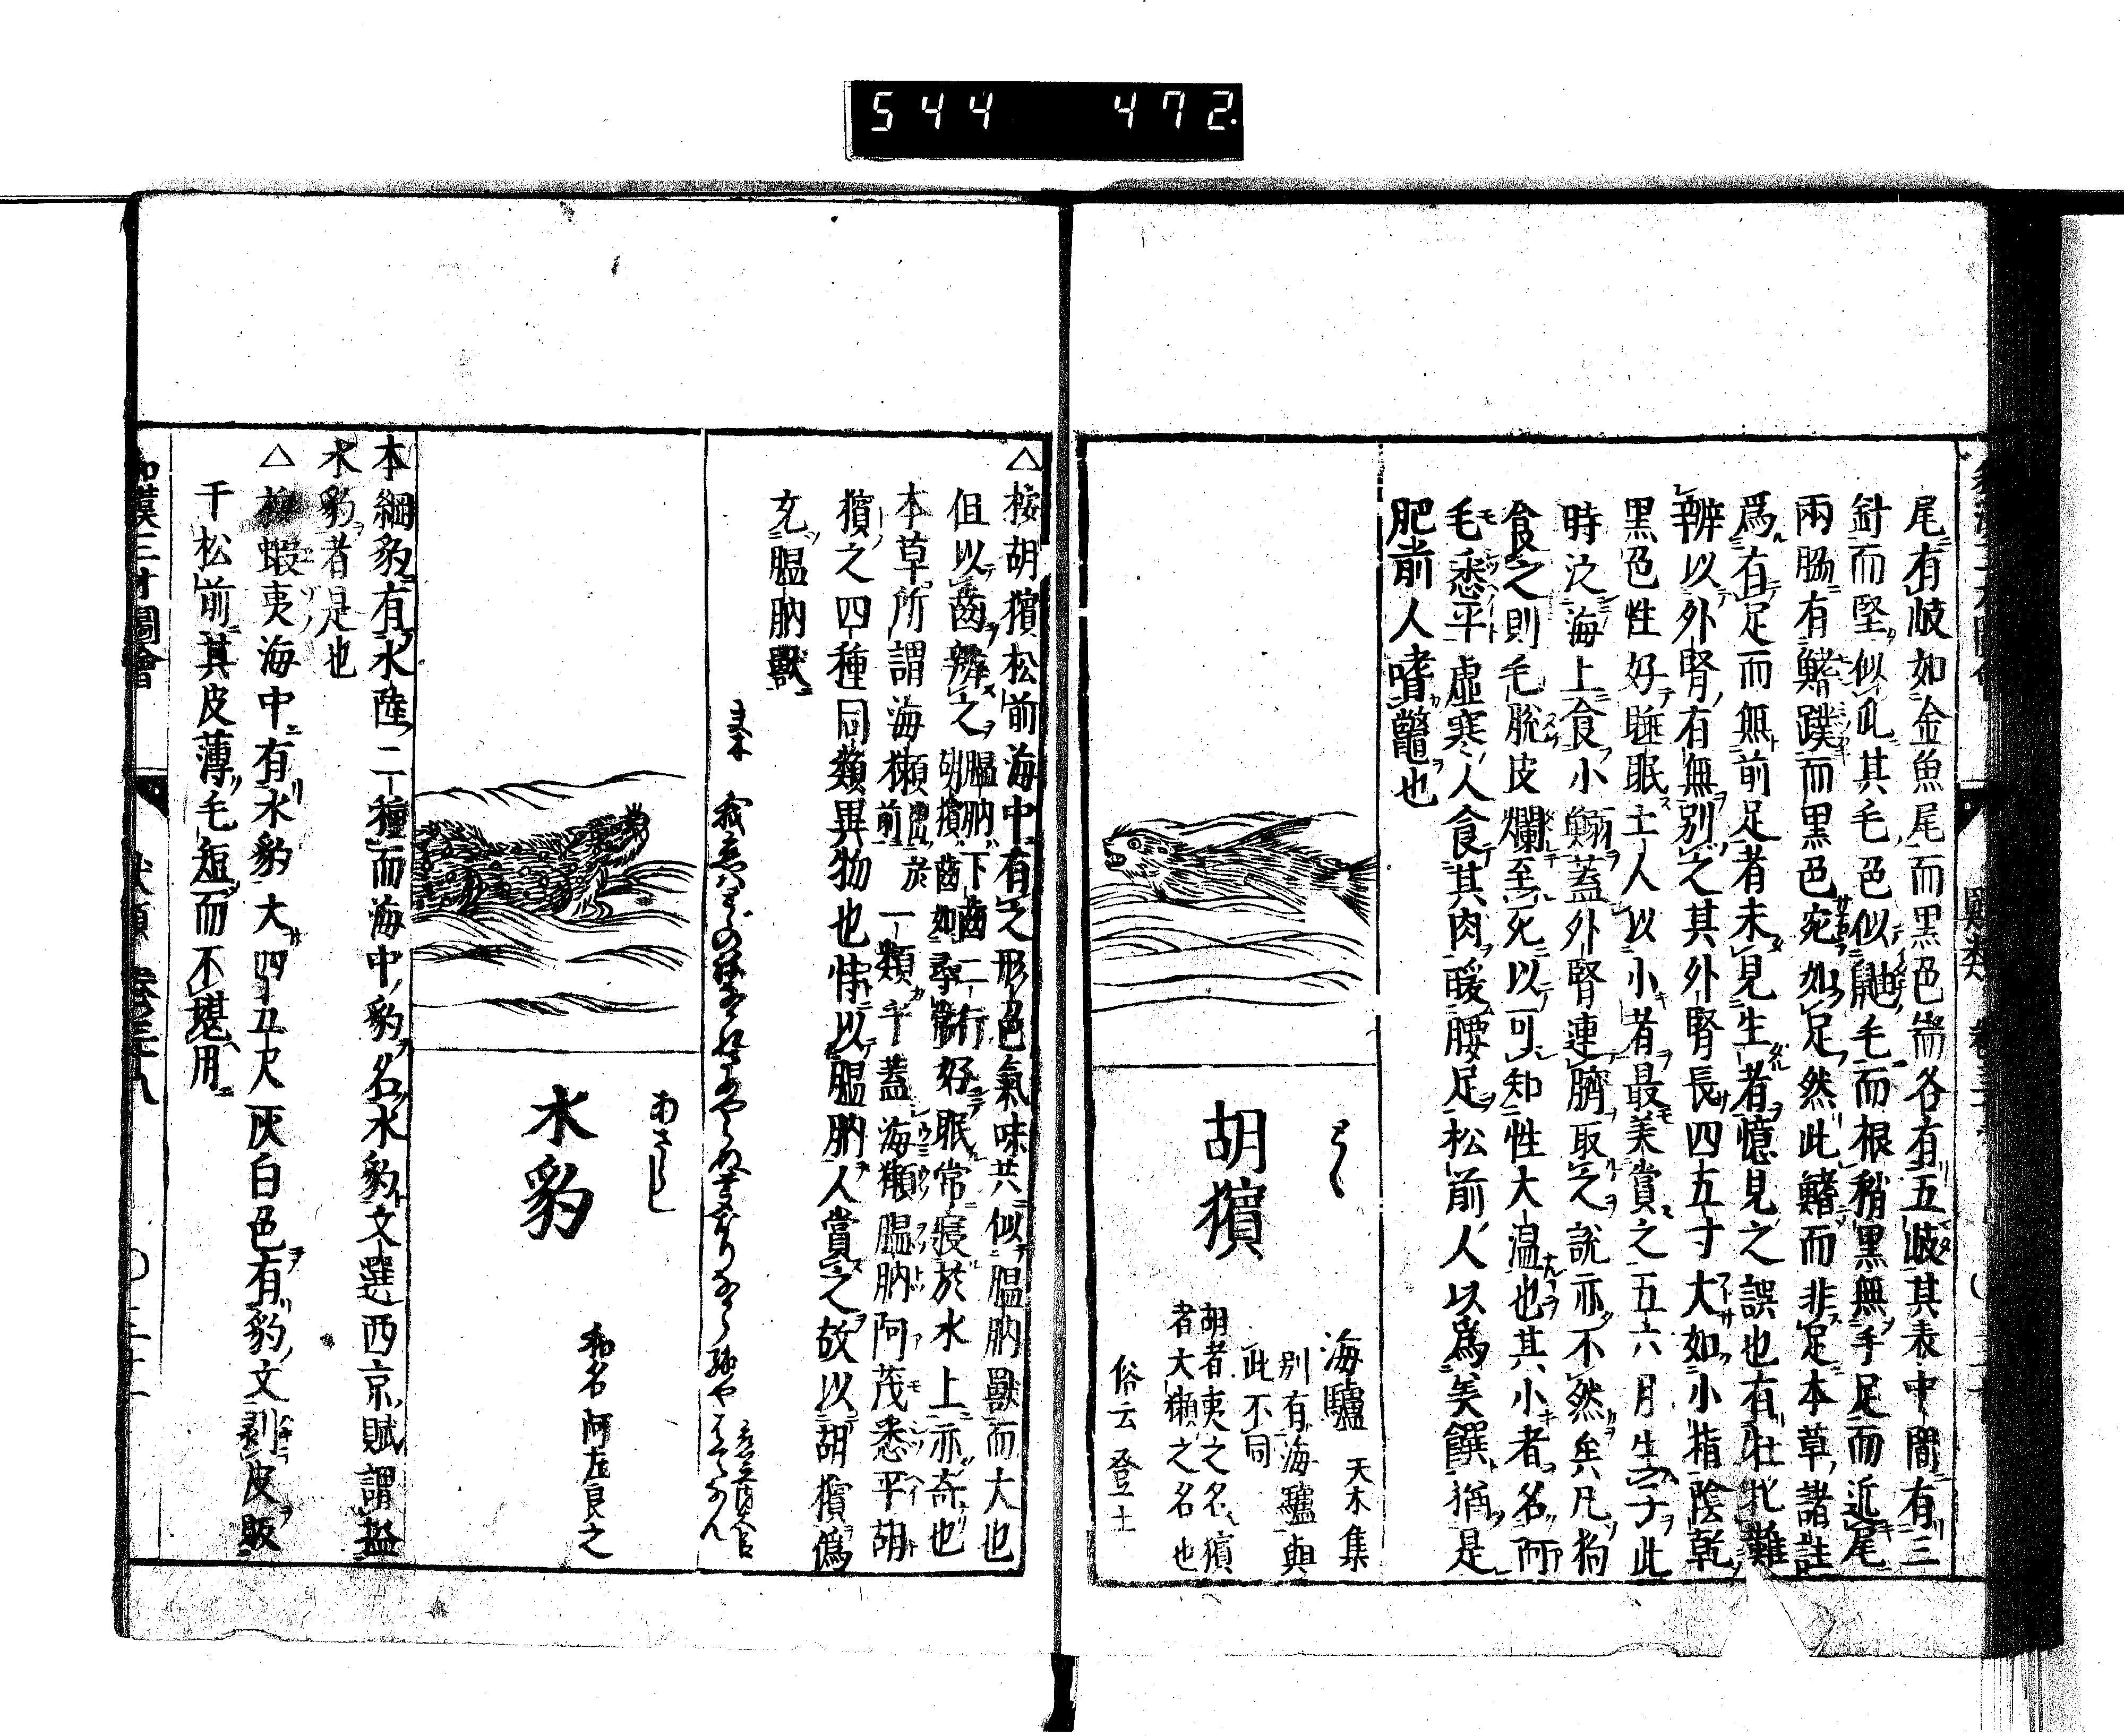 544 472.
尾有岐如金魚尾而黒色耑各有五岐其表中間有三
針而堅似爪其毛色似鼬毛而根稍黒無手足而近尾
兩脇有鰭蹼而黒色宛如足然此鰭而非足本草諸註
爲有足而無前足者未見生者憶見之誤也有牡牝難
辨以外腎有無別之其外腎長四五寸大如小指陰乾
黒色性好睡眠土人以小者最美賞之五六月生子此
時泛海上食小鰯蓋外腎連臍取之説亦不然矣凡狗
食之則毛脱皮爛至死以可知性大温也其小者名阿
毛悉平虚寒人食其肉暖腰足松前人以爲美饌猶是
肥前人嗜鼈也
とゞ
胡獱
海驢 天木集
別有海驢與
此不同
胡者夷之名獱
者大獺之名也
俗云登土
△桉胡獱松前海中有之形色氣味共似膃肭獸而大也
但以齒辨之膃肭下齒二行
胡獱齒如尋常好眠常寢於水上亦奇也
本草所謂海獺前於一類乎蓋海獺膃肭阿茂悉平胡
獱之四種同類異物也惟以膃肭人賞之故以胡獱僞
充膃肭獸
水豹
あさらし
和名阿左良之
本綱豹有水陸二種而海中豹名水豹文選西京賦謂搤
水豹者是也
△桉蝦夷海中有水豹大四五尺灰白色有豹文剥皮販
于松前其皮薄毛短而不堪用
和漢三才圖會